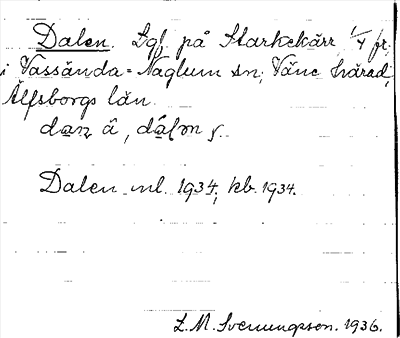 Dalen. Lgf. på Starkekärr 1/4 fr.
i Vassända-Naglum sn; Väne härad,
Älfsborgs län.
Dalen ml. 1934, kb. 1934.
L. M. Svenungsson. 1936.